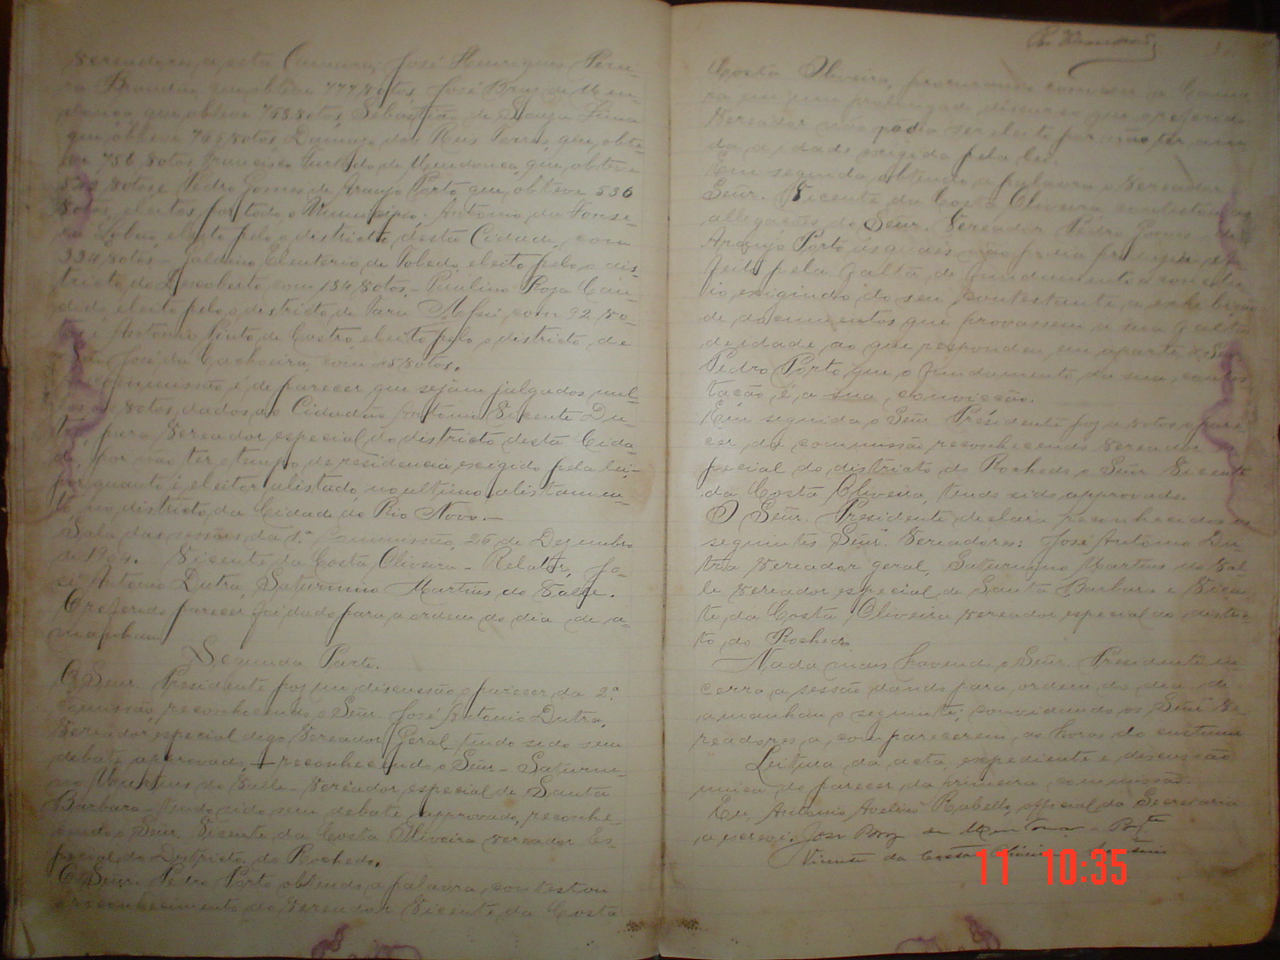 Vereadores desta Camara, José Henriques Perei-
ra Brandão, que obteve 777 Votos, José Braz de Men-
donça, que obteve 768 Votos, Sebastião de Souza Lima
que obteve 759 Votos, Domingos dos Reis que obte-
ve 756 Votos, Francisco Furtado de Mendonça, que obteve
Votos e Pedro Gomes de Araujo Porto que obteve 536
Votos, eleitos por todo o Municipio. Antonio da Fonse-
ca Lobão, eleito pelo districto desta Cidade, com
334 Votos - Galdino Eleuterio de Toledo, eleito pelo dis-
tricto do Descoberto com 134 Votos, - Paulino Roza Can-
dido, eleito pelo districto de com 92 Vo-
tos e Antonio Pinto de Castro eleito pelo districto de
São José da Cachoeira, com Votos.
A commissão é de parecer que sejam julgados nul-
los os Votos, dados ao Cidadão Antonio Vicente Du-
tra, para Vereador especial do districto desta Cida-
de, por não ter o tempo de residencia exigido pela lei,
porquanto é eleitor alistado, no ultimo alistamen-
to, no districto da Cidade do Rio Novo. -
Sala das sessões da 1.ª Commissão, 26 de Dezembro
de Vicente da Costa Oliveira - Relator, Jo-
sé Antonio Dutra, Saturnino Martins do Valle.
O referido parecer foi dado para a ordem do dia de a-
manhan.
Segunda Parte.
O Señr. Presidente poz em discussão o parecer da 2.ª
commissão, reconhecendo o Señr. José Antonio Dutra,
Vereador especial digo Vereador Geral tendo sido sem
debate approvado, + reconhecendo o Señr - Saturni-
no Martins do Valle - Vereador especial de Santa
Barbara - tendo sido sem debate approvado, reconhe-
cendo o Señr. Vicente da Costa Oliveira vereador Es-
pecial do Districto do Rochedo.
O Señr. Pedro Porto obtendo a palavra, contestou
o reconhecimento do Vereador Vicente da Costa
Costa Oliveira, procurando convencer a Cama-
ra em um prolongado discurso que o referido
Vereador não podia ser eleito por não ter ain-
da a idade exigida pela lei.
Em seguida obtendo a palavra o Vereador
Señr. Vicente da Costa Oliveira, contestou as
allegações do Señr. Vereador Pedro Gomes de
Araujo Porto as quaes não
feito pela falta de fundamento
exigindo do seu contestante a exhibição
de documentos que provassem a sua falta
de idade ao que respondeu, em aparte, o Señr
Pedro Porto, que o fundamento da sua contes-
tação, é, a sua, convicção.
Em seguida o Señr Presidente poz a votos o pare-
cer da commissão reconhecendo Vereador
pecial do districto do Rochedo o Señr Vicente
da Costa Oliveira, tendo sido approvado.
O Señr. Presidente declara reconhecidos os
seguintes Señr. Vereadores: José Antonio Du-
tra Vereador geral, Saturnino Martins do Val-
le Vereador especial de Santa Barbara e Vicen-
te da Costa Oliveira vereador especial do distric-
to do Rochedo.
Nada mais havendo o Señr. Presidente en-
cerra a sessão dando para ordem do dia de
amanhan o seguinte; convidando os Señr. Ve-
readores a comparecerem, as horas do costume
Leitura da acta, expediente e discussão
unica do parecer da primeira commissão.
Eu, Antonio Avelino Rabello, official da Secretaria
a escrevi. José Braz de Mendonça -
Vicente da Costa Oliveira
11 10:35